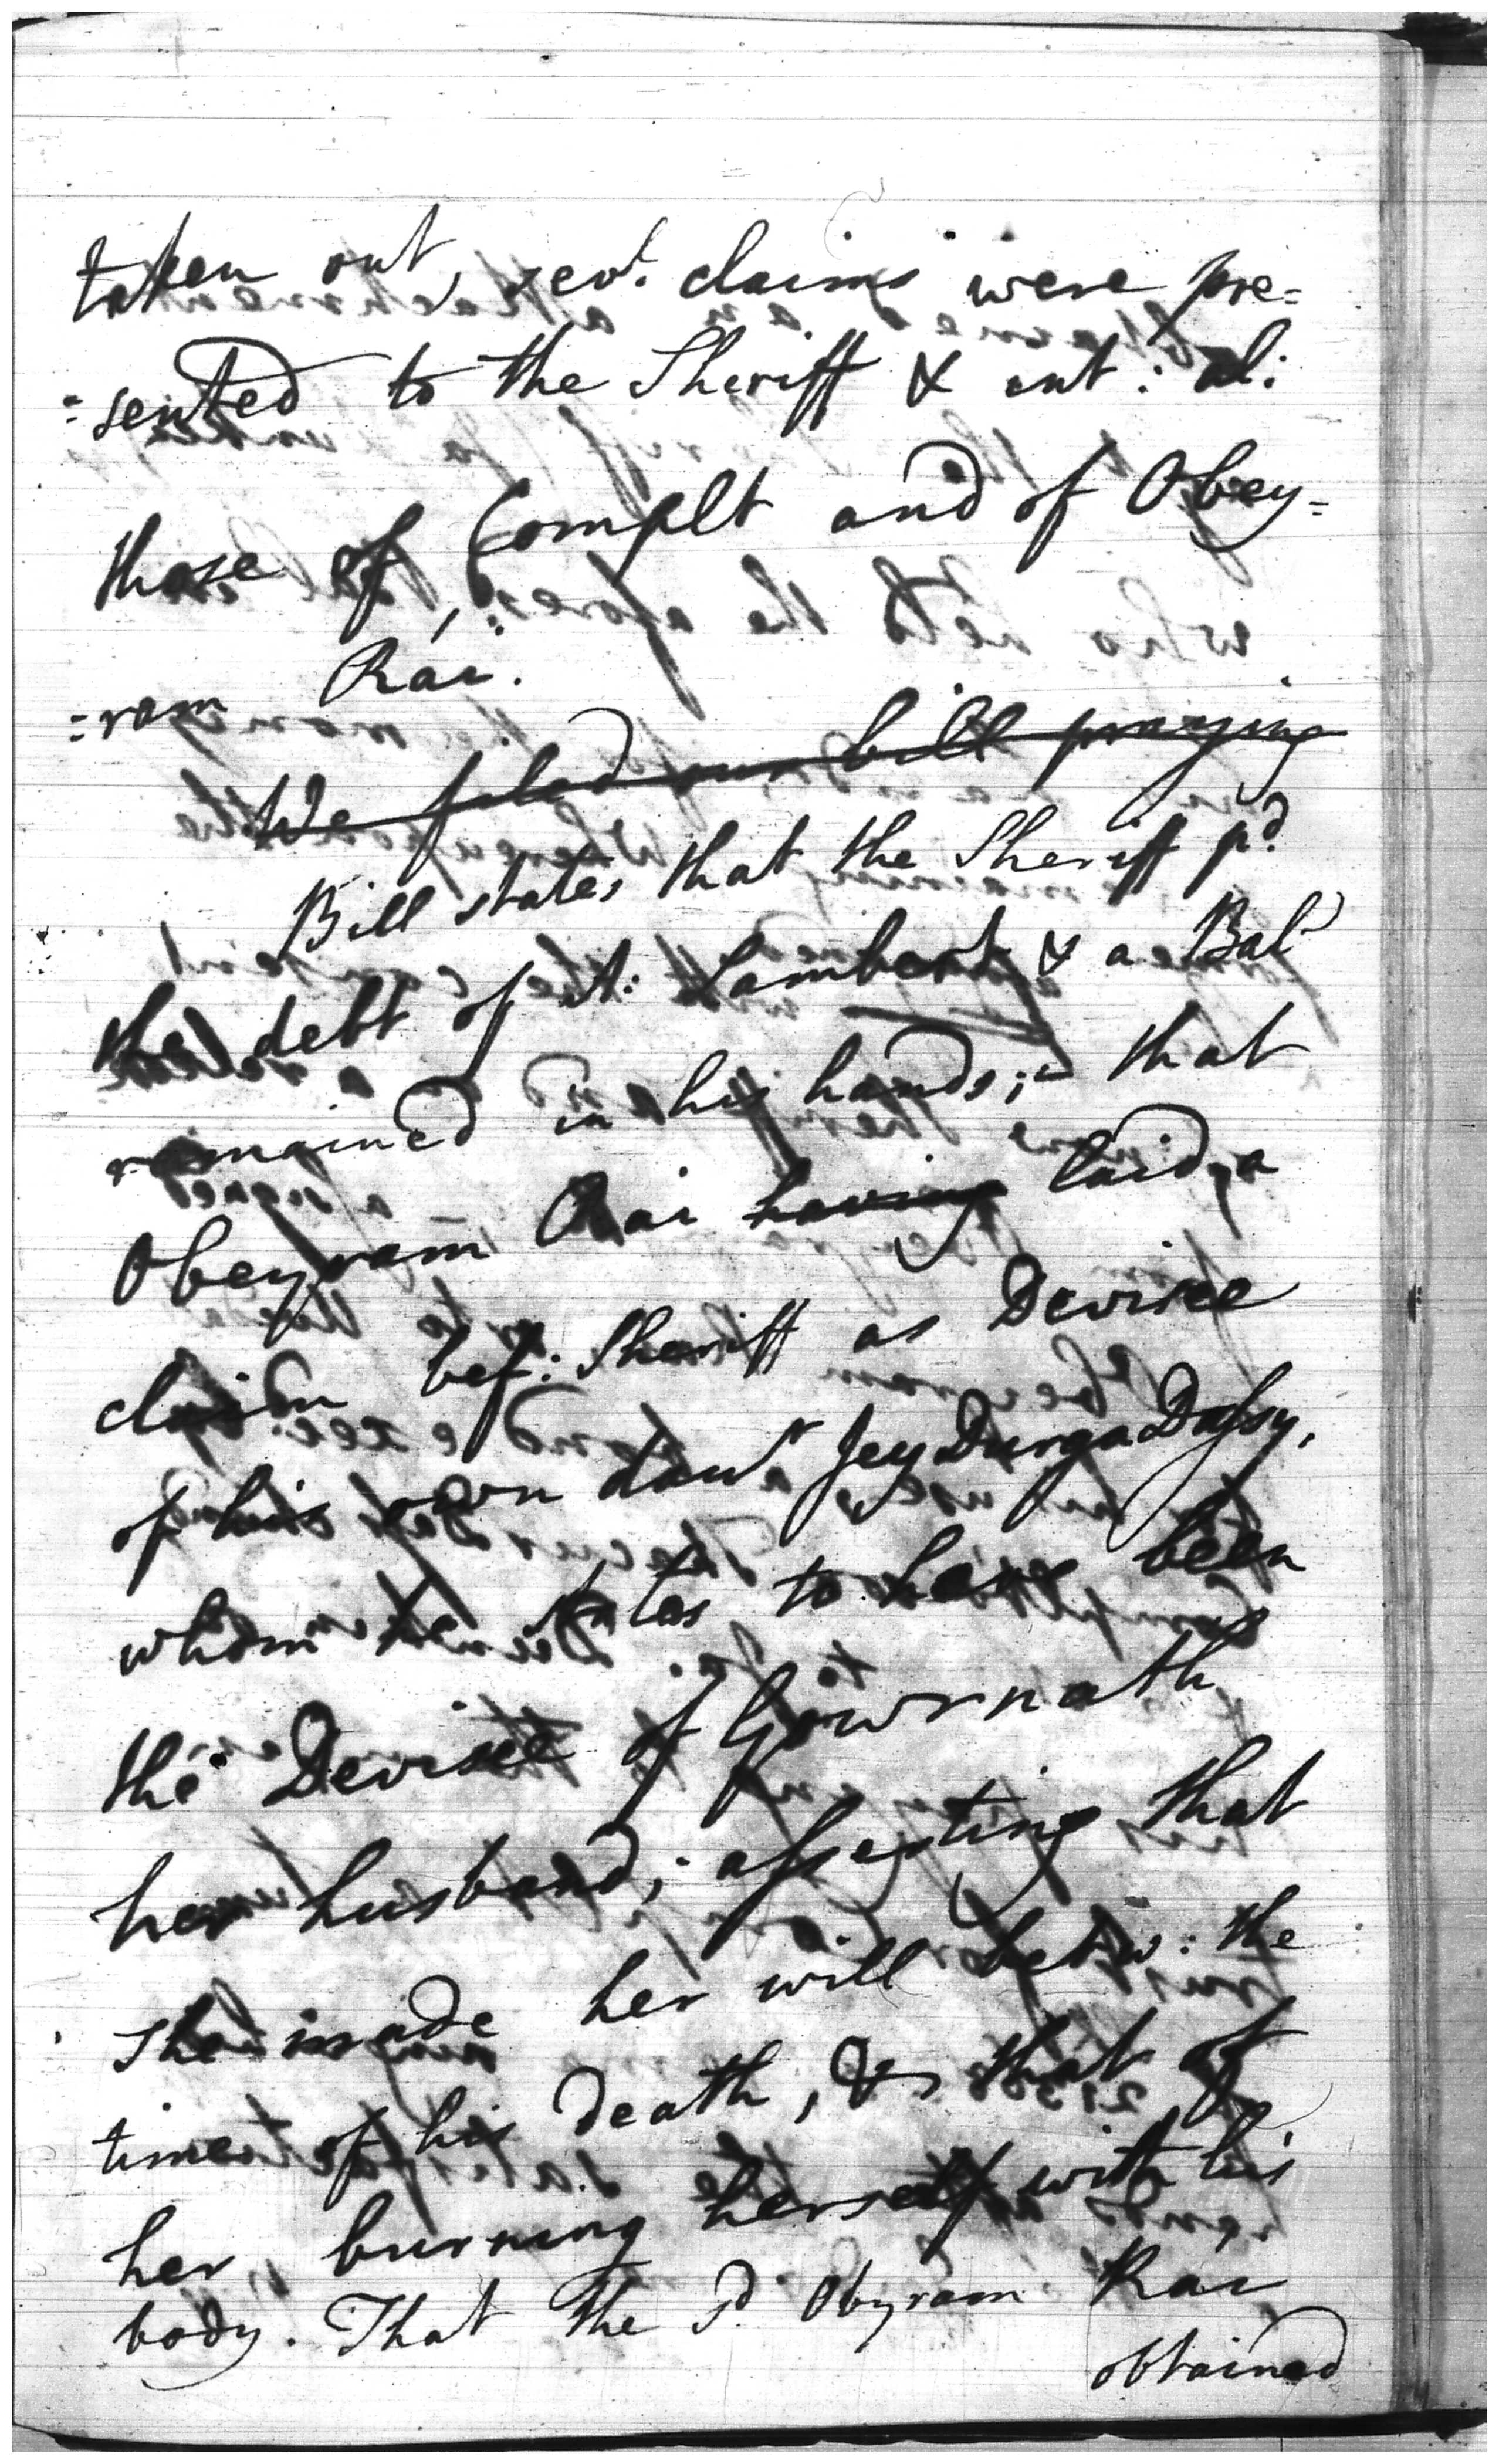 taken out, sevl. claims were pre=
=sented to the Sheriff & int: al:
those of Complt and of Obey=
=ram Rai.
We filed our bill praying
Bill states that the Sheriff pd.
the debt of A: Lambert & a Bal
remained in his hands; that
Obeyram Rai having laid a
claim bef: Sheriff as Devisee
of his own daur Jey Durga Dassy,
whom he states to have been
the Devisee of Gowrnath
her husband; asserting that
she made her will betw: the
time of his death, & that of
her burning herself with his
body. That the sd. Obyram Rai
obtained